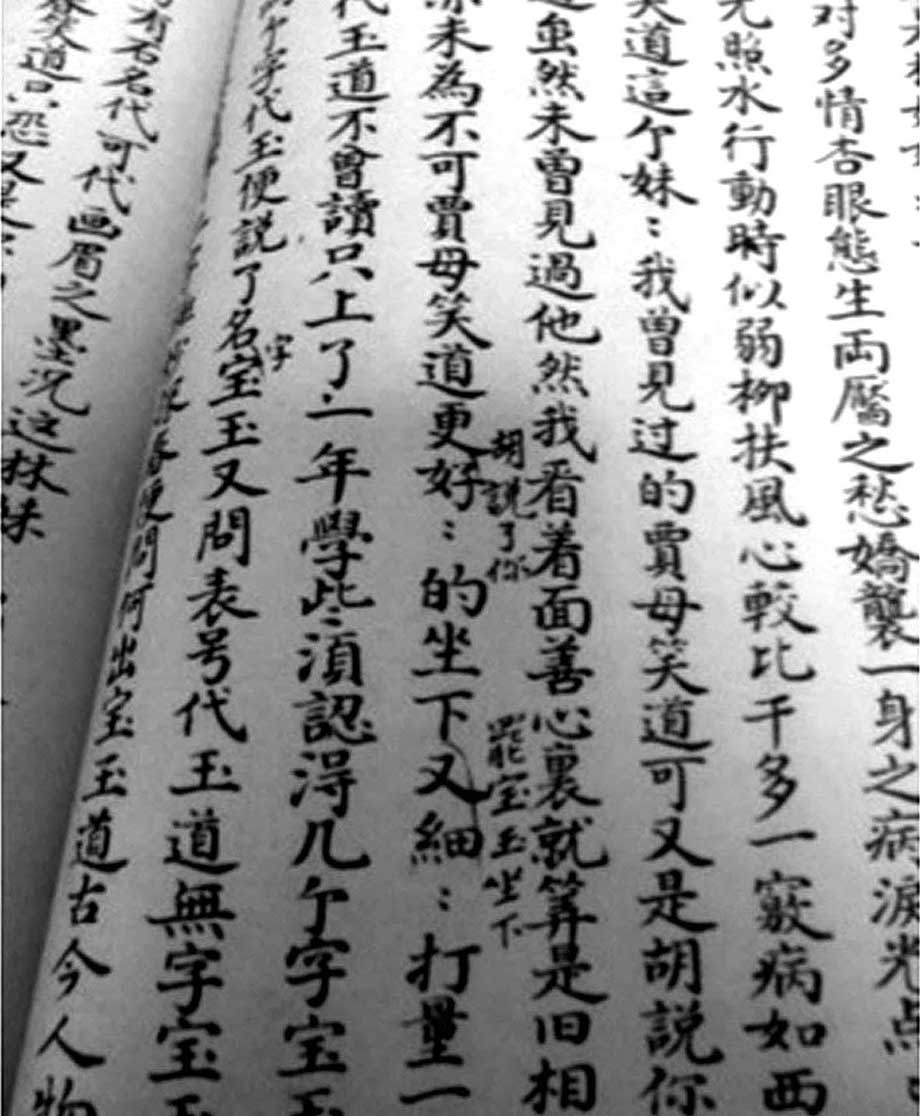 对多情杏眼態生両靨之愁嬌襲一身之病淚光点
照水行動時似弱柳扶風心較比干多一竅病如西
笑道這个妹：我曾見过的賈母笑道可又是胡説你
虽然未曽見過他然我看着面善心裏就算是旧相
胡説了你
罷宝玉坐下
未為不可賈母笑道更好：的坐下又細：打量一
代玉道不曾讀只上了一年學些須認淂几个字宝玉
个字代玉便説了名宝玉又問表号代玉道無字宝玉
字
便問何出宝玉道古今人物
有石名代可代画眉之墨况这妹
笑道只恐又是